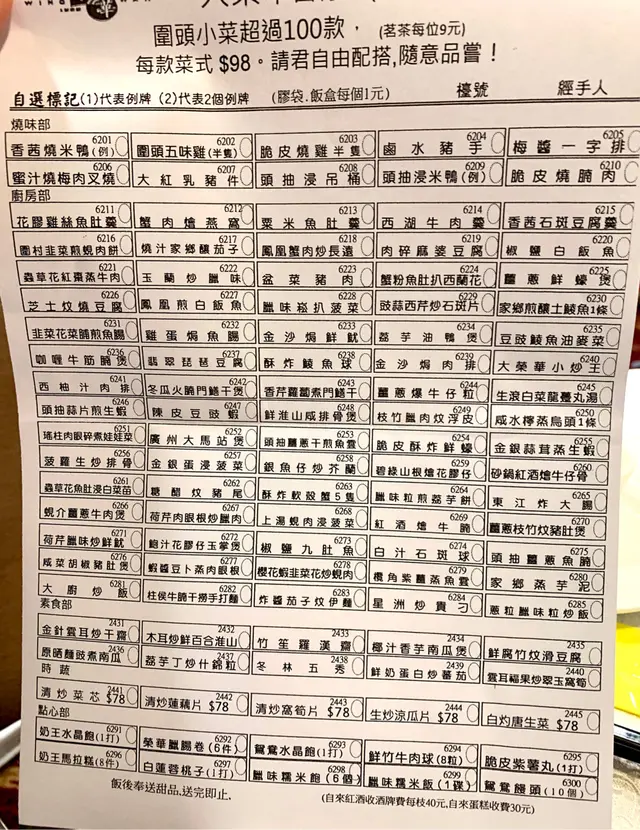 圍頭小菜超過100款， (茗茶每位9元)
每款菜式 $98。請君自由配搭,隨意品嘗！
自選標記(1)代表例牌 (2)代表2個例牌 (膠袋.飯盒每個1元) 檯號 經手人
燒味部
6201 6202 6203 6204 6205
香茜燒米鴨(例) 圍頭五味雞(半隻) 脆皮燒雞半隻 鹵水豬手 梅醬一字排
6206 6207 6208 6209 6210
蜜汁燒梅肉叉燒 大紅乳豬件 頭抽浸吊桶 頭抽浸米鴨(例) 脆皮燒腩肉
廚房部
6211 6212 6213 6214 6215
花膠雞絲魚肚羹 蟹肉燴燕窩 粟米魚肚羹 西湖牛肉羹 香茜石斑豆腐羹
6216 6217 6218 6219 6220
圍村韭菜煎蜆肉餅 燒汁家鄉釀茄子 鳳凰蟹肉炒長遠 肉碎麻婆豆腐 椒鹽白飯魚
6221 6222 6223 6224 6225
蟲草花紅棗蒸牛肉 玉蘭炒臘味 盆菜豬肉 蟹粉魚肚扒西蘭花 薑蔥鮮蠔煲
6226 6227 6228 6229 6230
芝士炆燒豆腐 鳳凰煎白飯魚 臘味崧扒菠菜 豉蒜西芹炒石斑片 家鄉煎釀土鯪魚1條
6231 6232 6233 6234 6235
韭菜花菜脯煎魚腸 雞蛋焗魚腸 金沙焗鮮魷 荔芋油鴨煲 豆豉鯪魚油麥菜
6236 6237 6238 6239 6240
咖喱牛筋腩煲 翡翠琵琶豆腐 酥炸鯪魚球 金沙焗肉排 大榮華小炒王
6241 6242 6243 6244 6245
西柚汁肉排 冬瓜火腩門鱔干煲 香芹蘿蔔煮門鱔干 薑蔥爆牛仔粒 生滾白菜龍躉丸湯
6246 6247 6248 6249 6250
頭抽蒜片煎生蝦 陳皮豆豉蝦 鮮淮山咸排骨煲 枝竹臘肉炆浮皮 咸水檸蒸烏頭1條
6251 6252 6253 6254 6255
瑤柱肉眼碎煮娃娃菜 廣州大馬站煲 頭抽薑蔥干煎魚雲 脆皮酥炸鮮蠔 金銀蒜茸蒸生蝦
6256 6257 6258 6259 6260
菠蘿生炒排骨 金銀蛋浸菠菜 銀魚仔炒芥蘭 碧綠山根燴花膠仔 砂鍋紅酒燴牛仔骨
6261 6262 6263 6264 6265
蟲草花魚肚浸白菜苗 糖醋炆豬尾 酥炸軟殼蟹5隻 臘味粒煎荔芋餅 東江炸大腸
6266 6267 6268 6269 6270
蜆介薑蔥牛肉煲 荷芹肉眼根炒臘肉 上湯蜆肉浸菠菜 紅酒燴牛腩 薑蔥枝竹炆豬肚煲
6271 6272 6273 6274 6275
荷芹臘味炒鮮魷 鮑汁花膠仔玉掌煲 椒鹽九肚魚 白汁石斑球 頭抽薑蔥魚腩
6276 6277 6278 6279 6280
咸菜胡椒豬肚煲 蝦醬豆卜蒸肉眼根 櫻花蝦韭菜花炒蜆肉 欖角紫薑蒸魚雲 家鄉蒸芋泥
6281 6282 6283 6284 6285
大廚炒飯 柱侯牛腩干撈手打麵 炸醬茄子炆伊麵 星洲炒貴刁 蔥粒臘味粒炒飯
素食部
2431 2432 2433 2434 2435
金針雲耳炒干齋 木耳炒鮮百合淮山 竹笙羅漢齋 椰汁香芋南瓜煲 鮮腐竹炆滑豆腐
2436 2437 2438 2439 2440
原晒麵豉煮南瓜 荔芋丁炒什錦粒 冬林五秀 鮮奶蛋白炒蕃茄 雲耳福果炒翠玉窩筍
時蔬
2441 2442 2443 2444 2445
清炒菜芯 $78 清炒蓮藕片 $78 清炒窩筍片 $78 生炒涼瓜片 $78 白灼唐生菜 $78
點心部
6291 6292 6293 6294 6295
奶王水晶飽(1打) 榮華臘腸卷(6件) 鴛鴦水晶飽(1打) 鮮竹牛肉球(8粒) 脆皮紫薯丸(1打)
6296 6297 6298 6299 6300
奶王馬拉糕(8件) 白蓮蓉桃子(1打) 臘味糯米飽(6個) 臘味糯米飯(1磲) 鴛鴦饅頭(10個)
飯後奉送甜品,送完即止, (自來紅酒收酒牌費每枝40元,自來蛋糕收費30元)